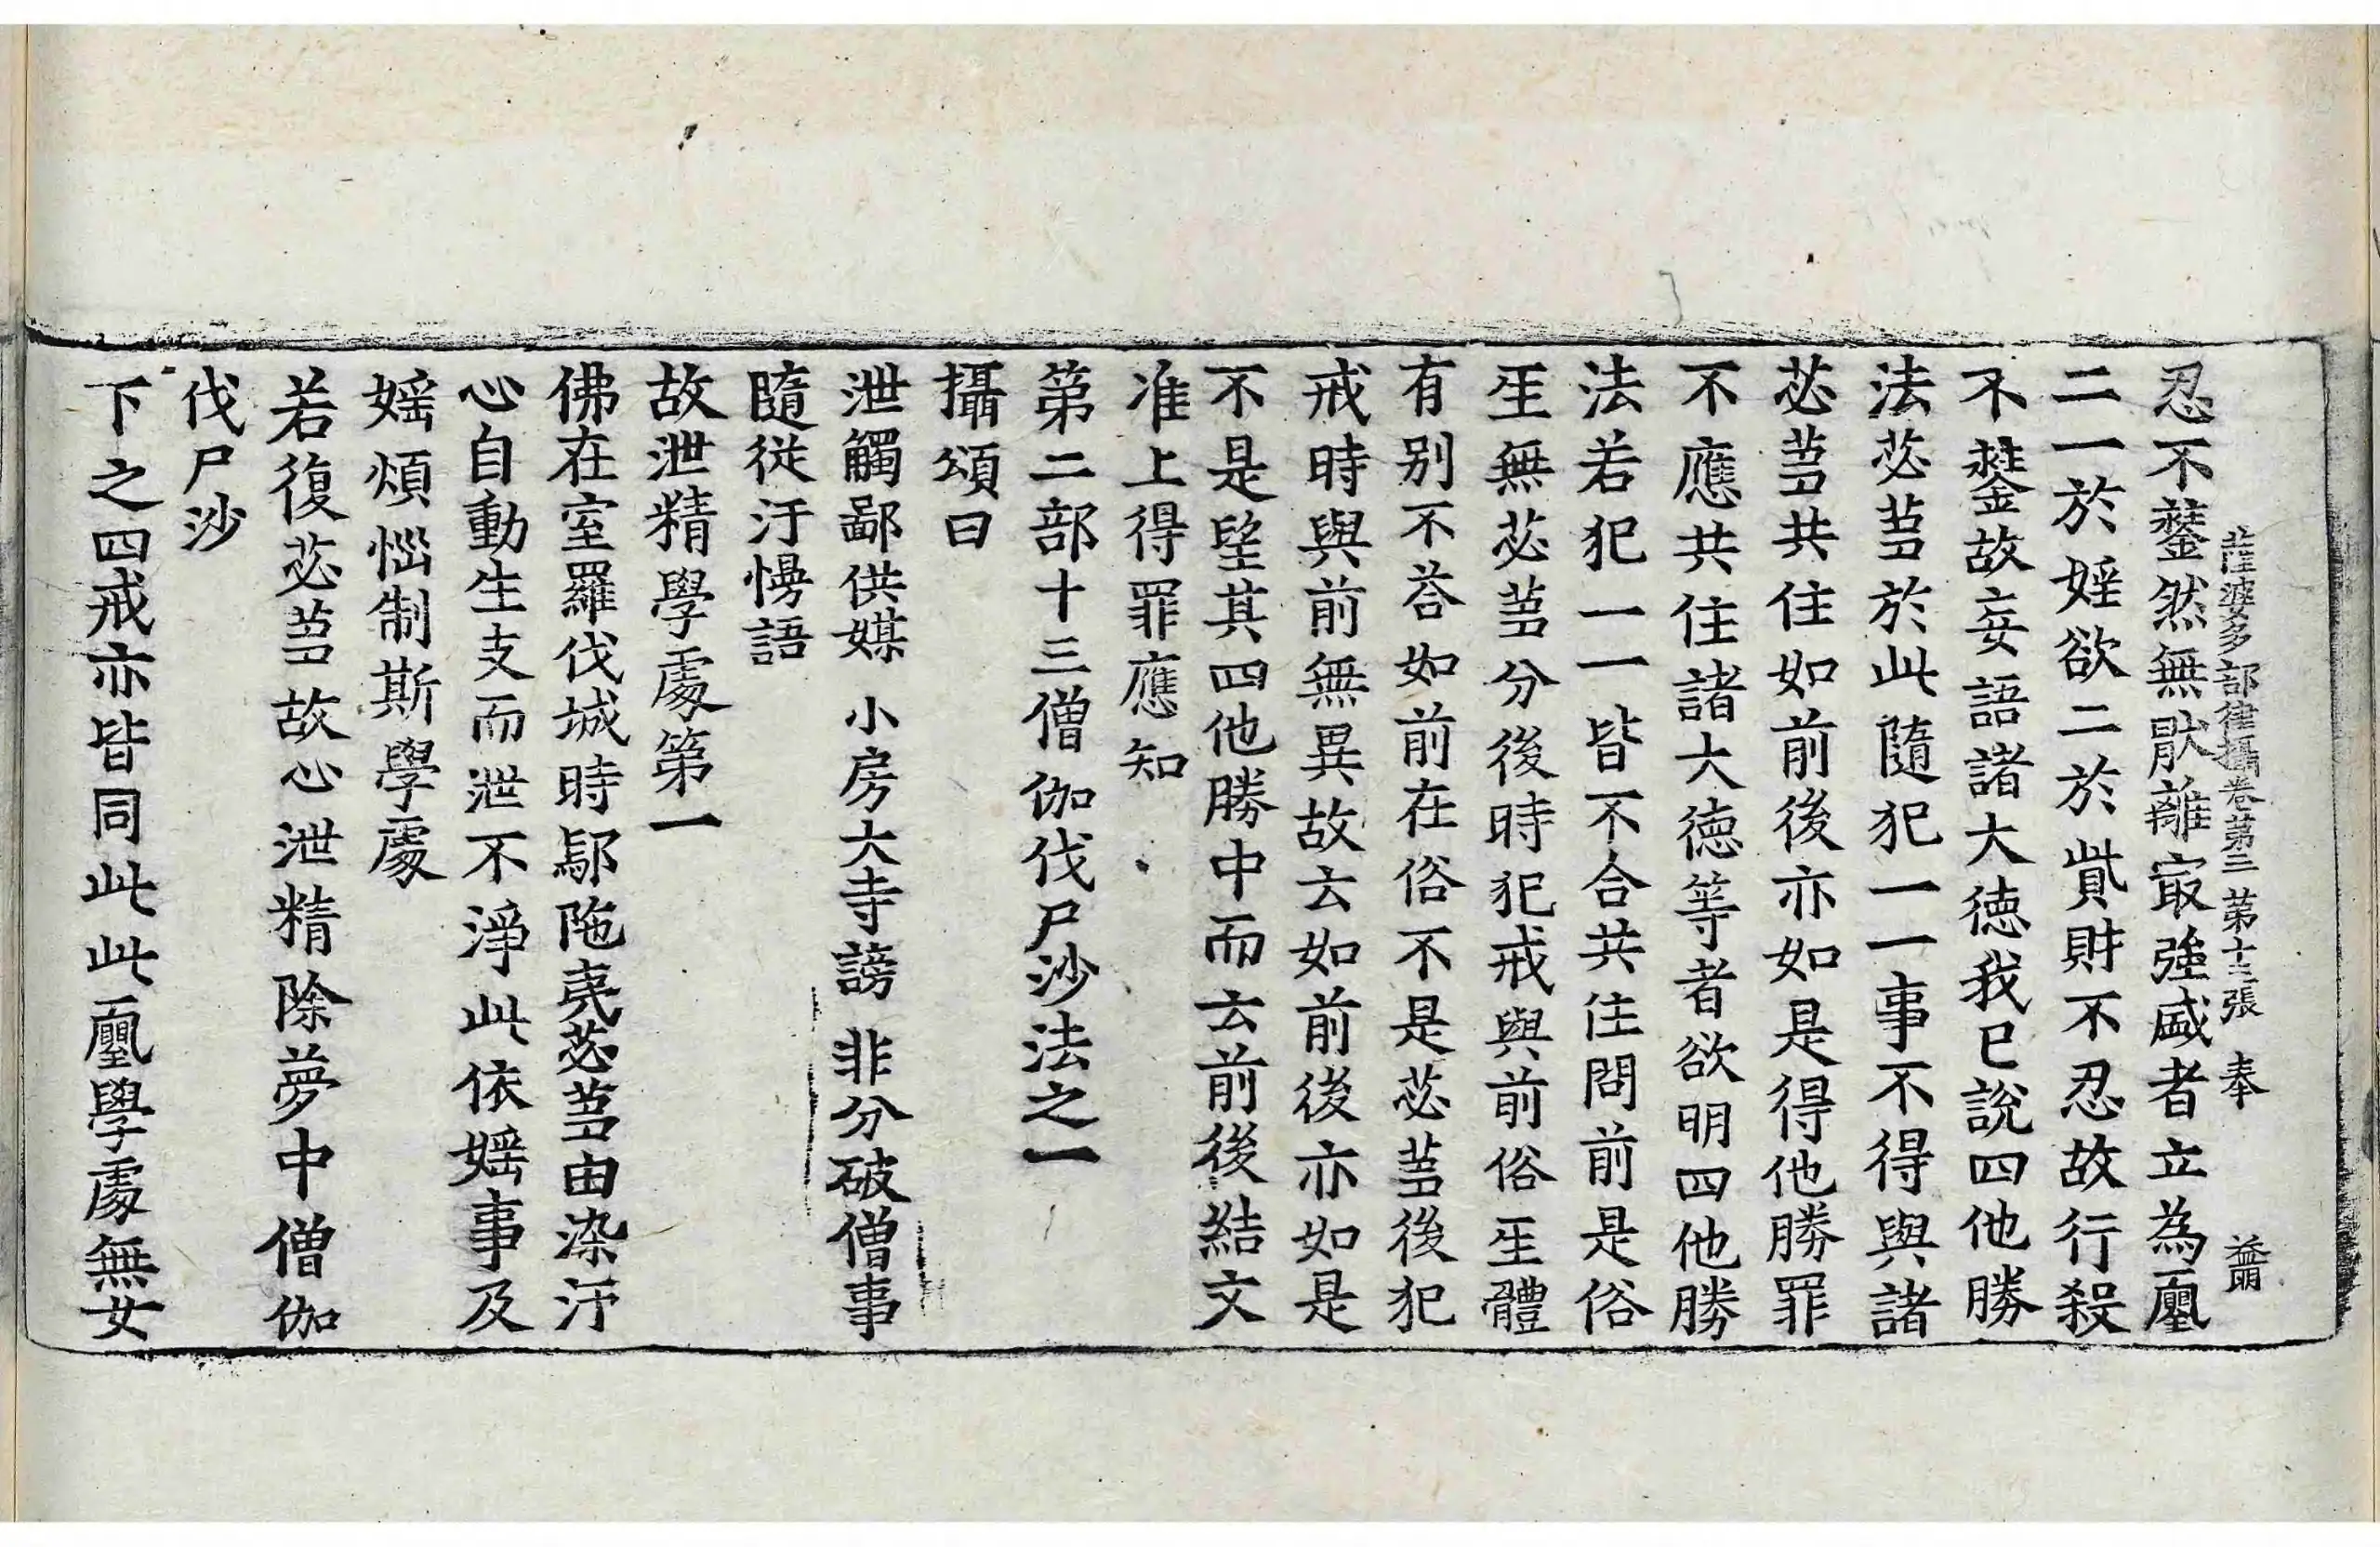 薩婆多部律攝卷苐三 苐十三張 奉
忍不𨯳然無猒離㝡強盛者立為𠪨
二一於婬欲二於貲財不忍故行殺
不𨯳故妄語諸大德我已說四他勝
法苾芻於此隨犯一一事不得與諸
苾芻共住如前後亦如是得他勝罪
不應共住諸大德等者欲明四他勝
法若犯一一皆不合共住問前是俗
𤯓無苾芻分後時犯戒與前俗𤯓體
有別不荅如前在俗不是苾芻後犯
戒時與前無異故云如前後亦如是
不是望其四他勝中而云前後結文
准上得罪應知
第二部十三僧伽伐尸沙法之一
攝頌曰
泄觸鄙供媒 小房大寺謗 非分破僧事
隨從汙慢語
故泄精學處第一
佛在室羅伐城時鄔陁夷苾芻由染汙
心自動生支而泄不淨此依婬事及
婬煩惱制斯學處
若復苾芻故心泄精除夢中僧伽
伐尸沙
下之四戒亦皆同此此𠪨學處無女